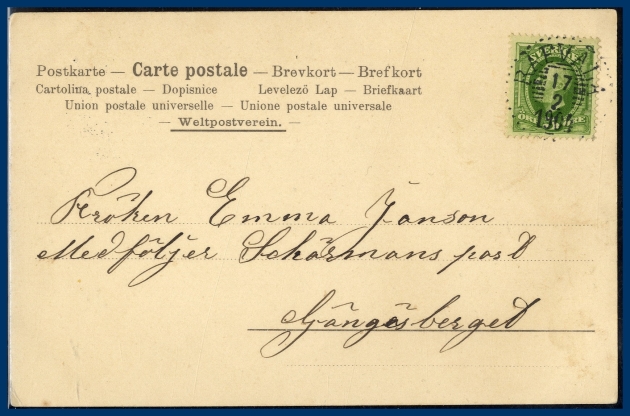 Postkarte — Carte postale — Brevkort — Brefkort
Cartolina postale — Dopisnice Levelező Lap — Briefkaart
Union postale universelle — Unione postale universale
— Weltpostverein. —
SVERIGE
17
2
1904
Fröken Emma Janson
Medföljer Schärmans post
Gängesberged